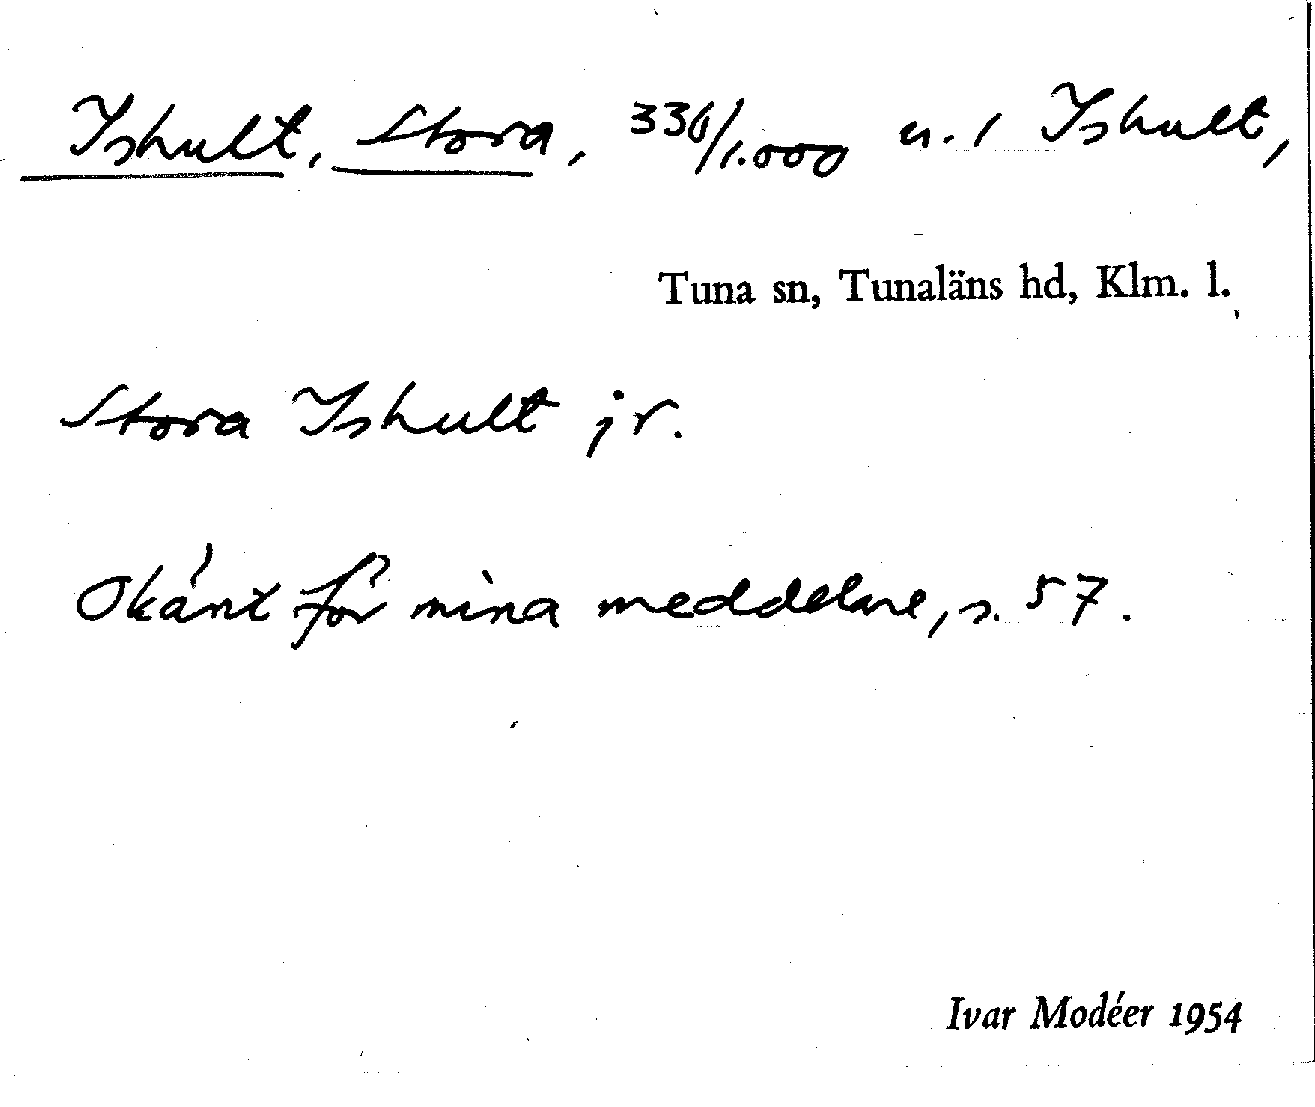 Ishult, Stora, 336/1.000 n. 1 Ishult,
Tuna sn, Tunaläns hd, Klm. l.
Stora Ishult jr.
Okänt för mina meddelare, s. 57.
Ivar Modéer 1954